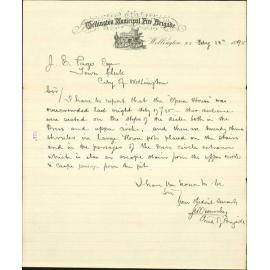 Wellington Municipal Fire Brigade
Wellington, N.Z. 22nd 1895
J. E. Page Esq
Town Clerk
City of Wellington
Sir/ I have to report that the Opera House was
overcrowded last night the audience
were seated on the steps of the aisles both in the
Dress and upper circle, and there were twenty three
shrubs in large flower pots placed on the stairs
and in the passages of the Dress circle entrance
which is also an escape stairs from the upper circle
& escape passage from the pit.
I have the honor to be
Sir
Your Obedient Servant
Brigade